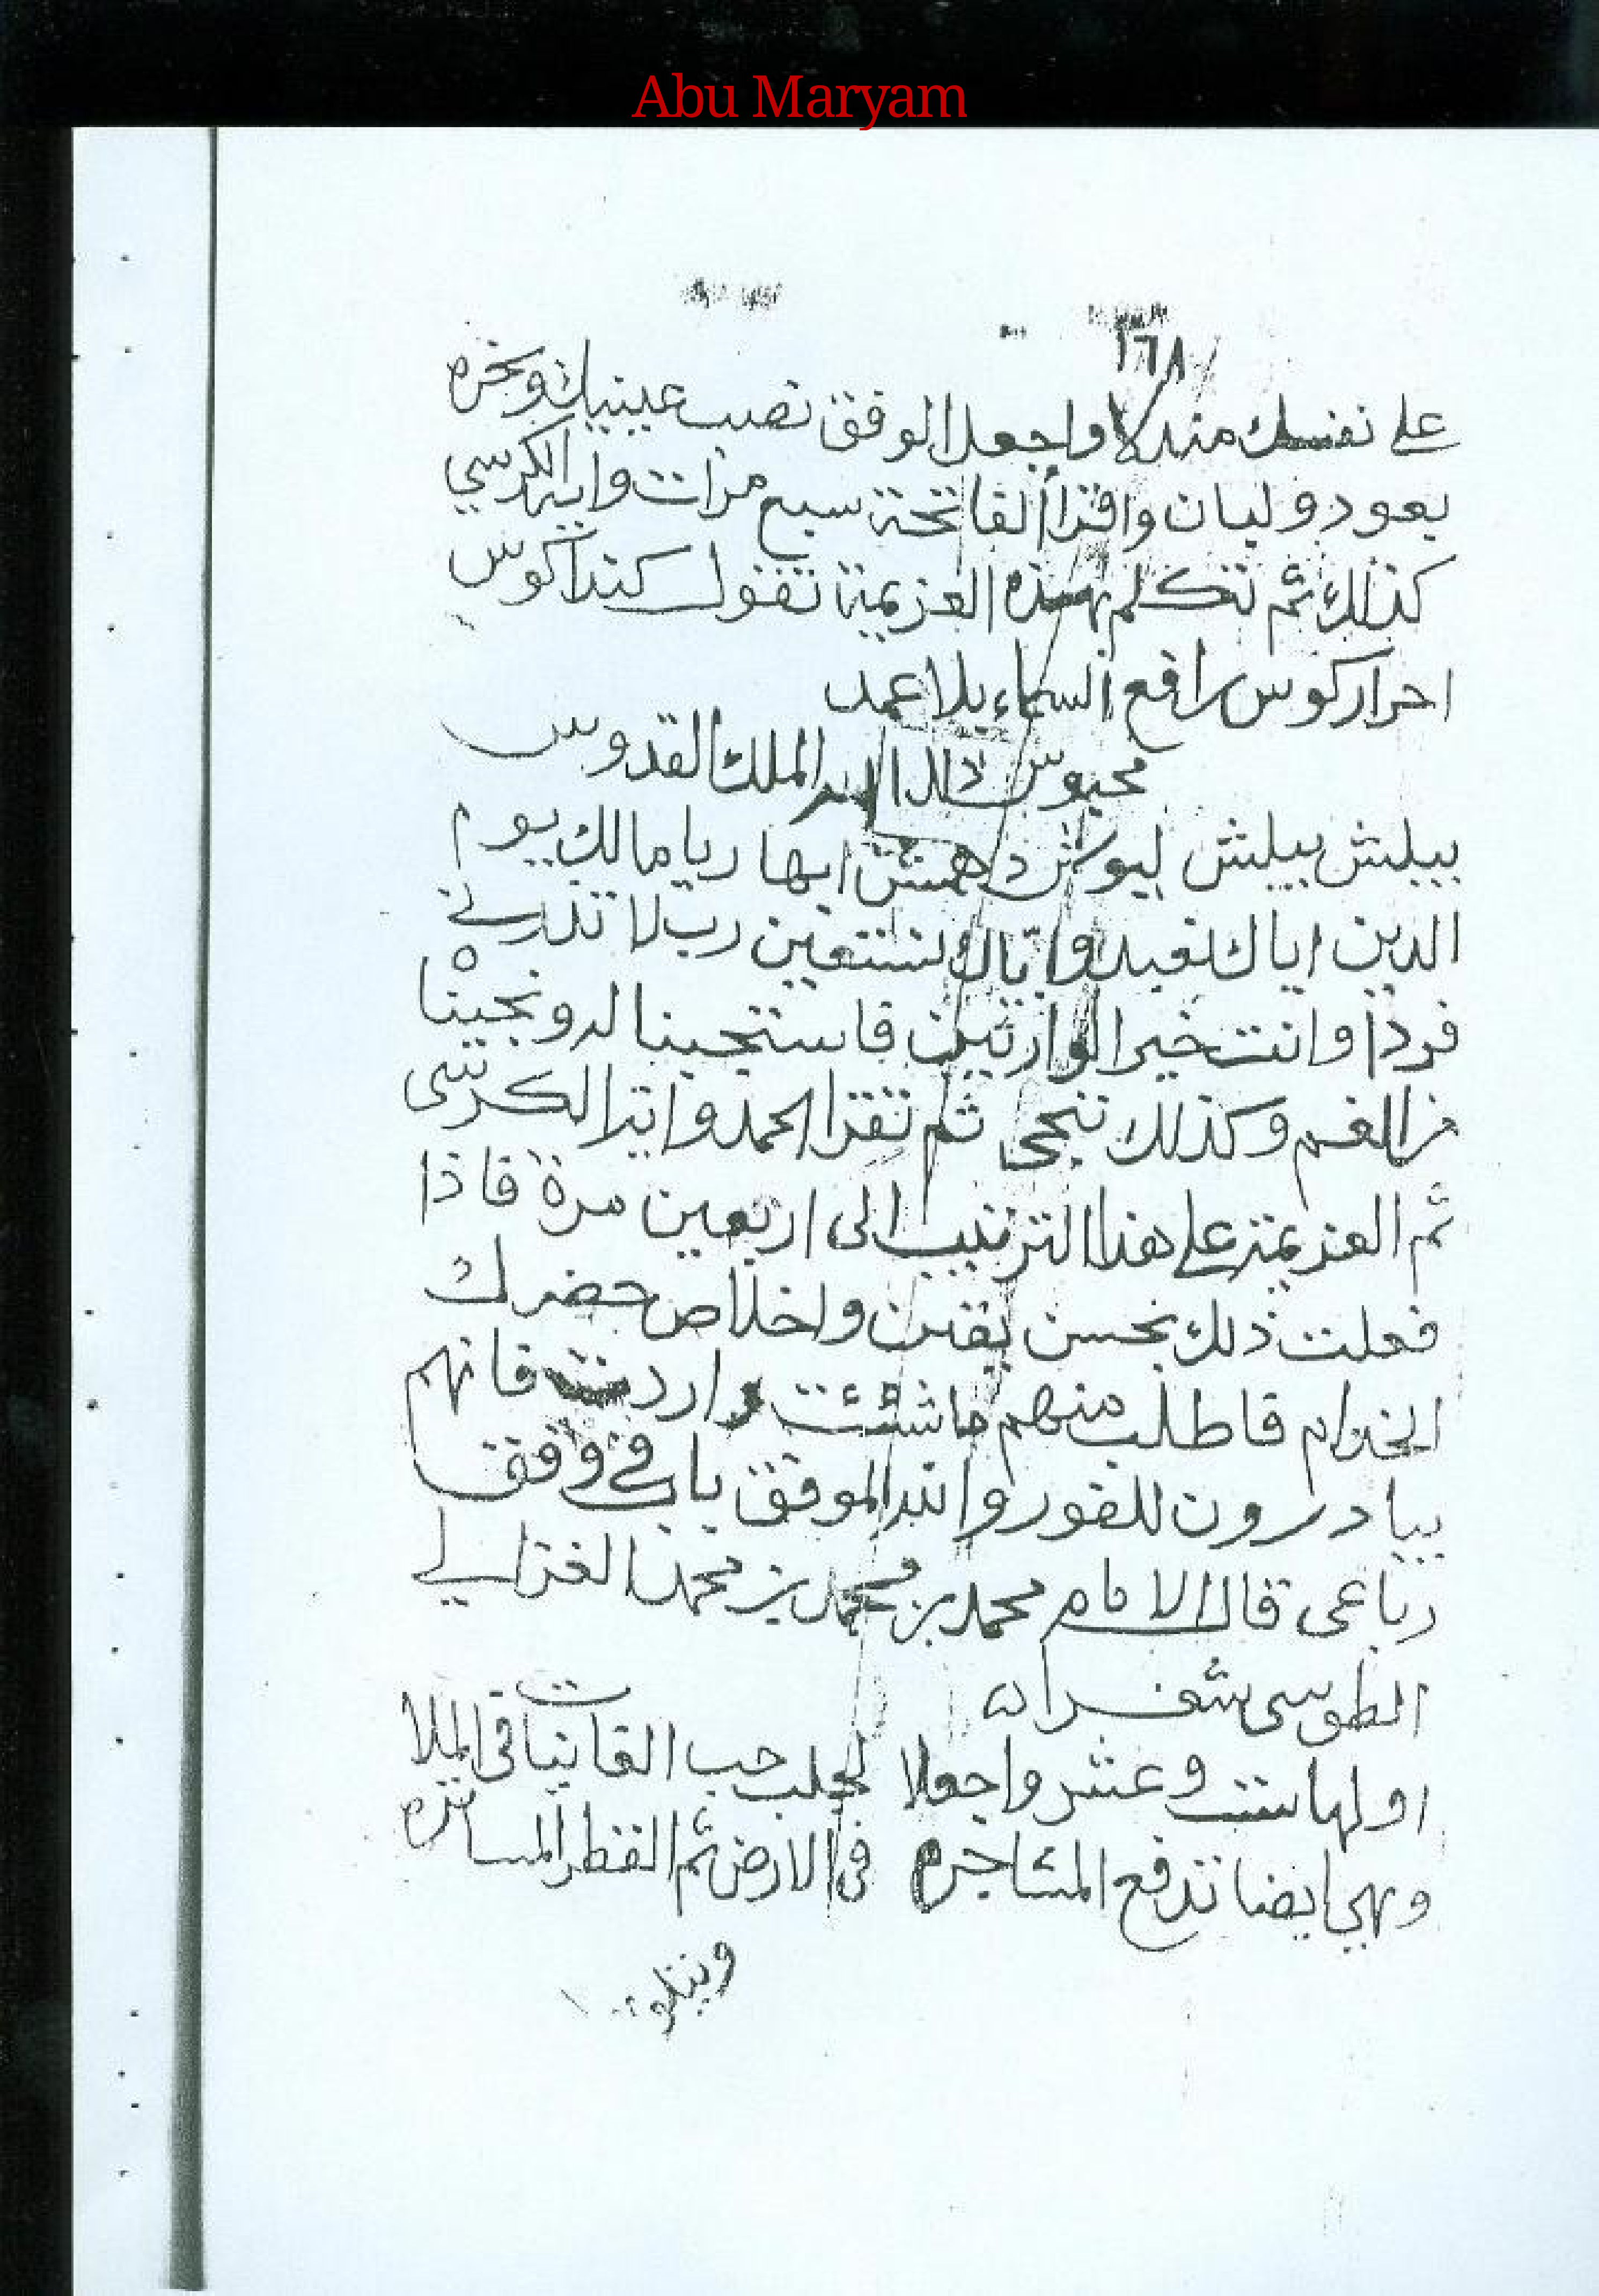 Abu Maryam
١٦٨
على نفسك مندلا واجعل الوفق نصب عينيك وبخره
بعود ولبان واقرأ الفاتحة سبع مرات واية الكرسي
كذلك ثم تتكلم بهذه العزيمة تقول كنداكوس
احراركوس رافع السماء بلا عمد
محبوس الملك القدوس
ببلش ببلش ليوكش دهمش ابها ربا مالك يوم
الدين اياك نعبد واياك نستعين رب لا تذرني
فردا وانت خير الوارثين فاستجبنا له ونجيناه
من الغم وكذلك ننجي ثم تقرا الحمد واية الكرسى
ثم العزيمة على هذا الترتيب الى اربعين مرة فاذا
فعلت ذلك بحسن يقين واخلاص حضرك
الخدام فاطلب منهم ما شئت واردت فانهم
يبادرون للفور والله الموفق باب في وفق
رباعى قال الامام محمد بن محمد بن محمد الغزالي
الطوسى شعرا
اولها ست وعشر واجعلا لجلب حب القانيات فى الملا
وهي ايضا تدفع المشاجره فى الارض ثم القطر